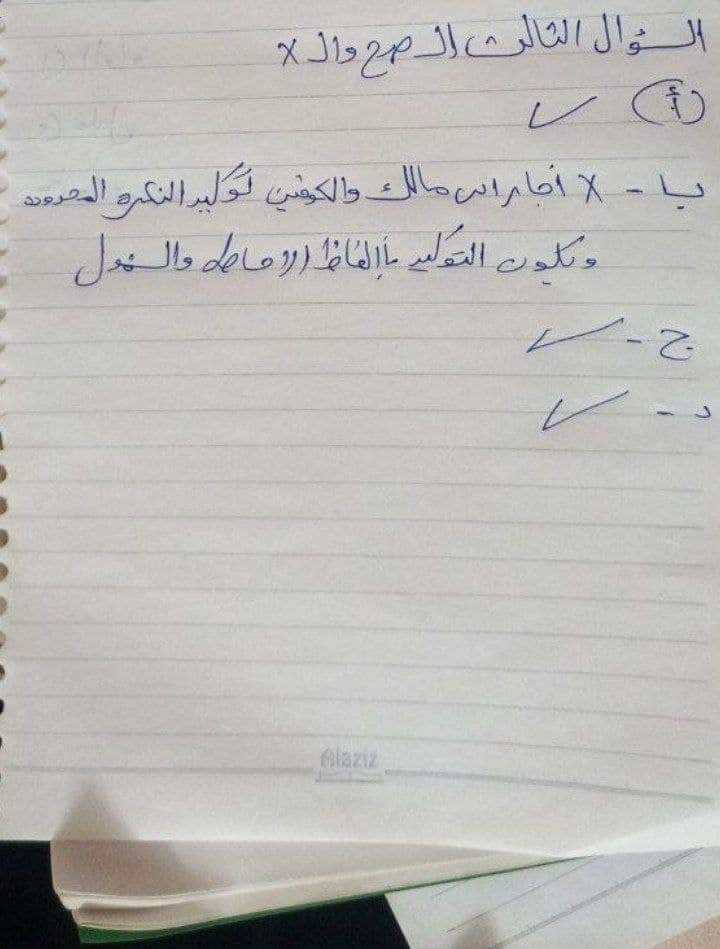 السؤال الثالث الـ صح والـ X
أ) ✓
ب - X أجاز ابن مالك والكوفين توكيد النكره المحدوده
ويكون التوكيد بألفاظ الاحاطه والشمول
ج - ✓
د - ✓
Alaziz